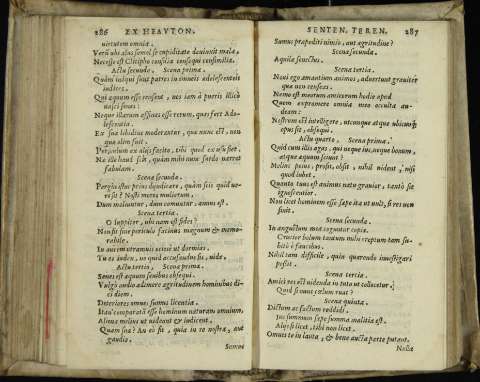 286 EX HEAVTON.
uirtutem omnia.
Verũ ubi alius semel se cupiditate deuinxit mala,
Necesse est Clitipho consilia consequi consimilia.
Actu secundo, Scena prima.
Quàm iniqui sunt patres in omneis adolescenteis
iudices.
Qui æquum esse censent, nos iam à pueris illico
nasci senes:
Neque illarum affines esse rerum, quas fert Ado-
lescentia.
Ex sua libidine moderantur, quæ nunc est, non
quæ olim fuit.
Periculum ex aliis facito, tibi quod ex usu siet.
Næ ille haud scit, quàm mihi nunc surdo narret
fabulam.
Scena secunda.
Pergin istuc prius diiudicare, quàm scis quid ue-
ri sit? Nosti mores mulierum.
Dum moliuntur, dum comuntur, annus est.
Scena tertia.
O Iuppiter, ubi nam est fides?
Non fit sine periculo facinus magnum & memo-
rabile.
In aurem utramuis otiose ut dormias.
Tu es iudex, ne quid accusandus sis, uide.
Actu tertio, Scena prima.
Senes est æquum senibus obsequi.
Vulgo audio admirer ægritudinem hominibus di-
ci diem.
Deteriores omnes sumus licentia.
Itan' comparatã esse hominum naturam omnium,
Aliena melius ut uideant & iudicent,
Quam sua? An eò fit, quia in re nostra, aut
gaudio
Sumus
SENTEN. TEREN. 287
Sumus præpediti nimio, aut ægritudine?
Scena secunda.
Aquilæ senectus.
Scena tertia.
Noui ego amantium animos, aduertunt grauiter
quæ non censeas.
Nemo est meorum amicorum hodie apud
Quem expromere omnia mea occulta au-
deam:
Nostrum est intelligere, utcunque atque ubicunq;
opus sit, obsequi.
Actu quarto, Scena prima.
Quid cum illis agas, qui neque ius, neque bonum,
atque æquum sciunt?
Melius peius, prosit, obsit, nihil uident, nisi
quod lubet.
Quanto tuus est animus natu grauior, tantò sis
ignoscentior.
Non licet hominem esse sæpe ita ut uult, si res non
sinit.
Scena secunda.
In angustum meæ coguntur copiæ.
Crucior bolum tantum mihi ereptum tam su-
bitò è faucibus.
Nihil tam difficile, quin quærendo inuestigari
possit.
Scena tertia.
Amici nos est uidenda in tuto ut collocetur.
Quid si nunc cælum ruat?
Scena quinta.
Dictum ac factum reddidi.
Ius summum sæpe summa malitia est.
Aliis si licet, tibi non licet.
Omnes te in lauta, & bene aucta parte putant.
Nulla